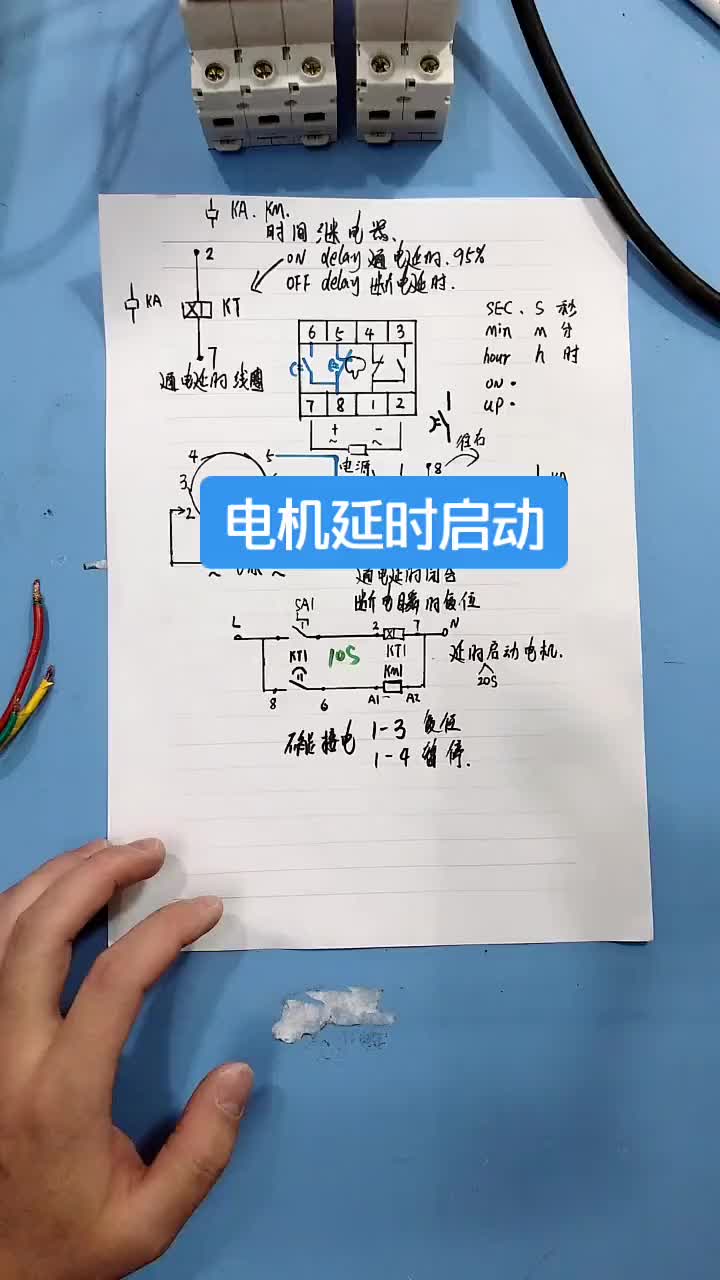 KA. KM.
时间继电器.
2
ON delay 通电延时. 95%
OFF delay 断电延时.
KA
KT
7
通电延时线圈
SEC. S 秒
min m 分
hour h 时
ON·
UP·
6 5 4 3
7 8 1 2
+ -
~ ~
电源
往右
8
4 5
3
2
KA
电机延时启动
~ ~
通电延时闭合
断电瞬时复位
SA1
L 2 7 N
KT1 10S KT1
KM1
延时启动电机.
20S
8 6 A1 A2
不能接电 1-3 复位
1-4 暂停.